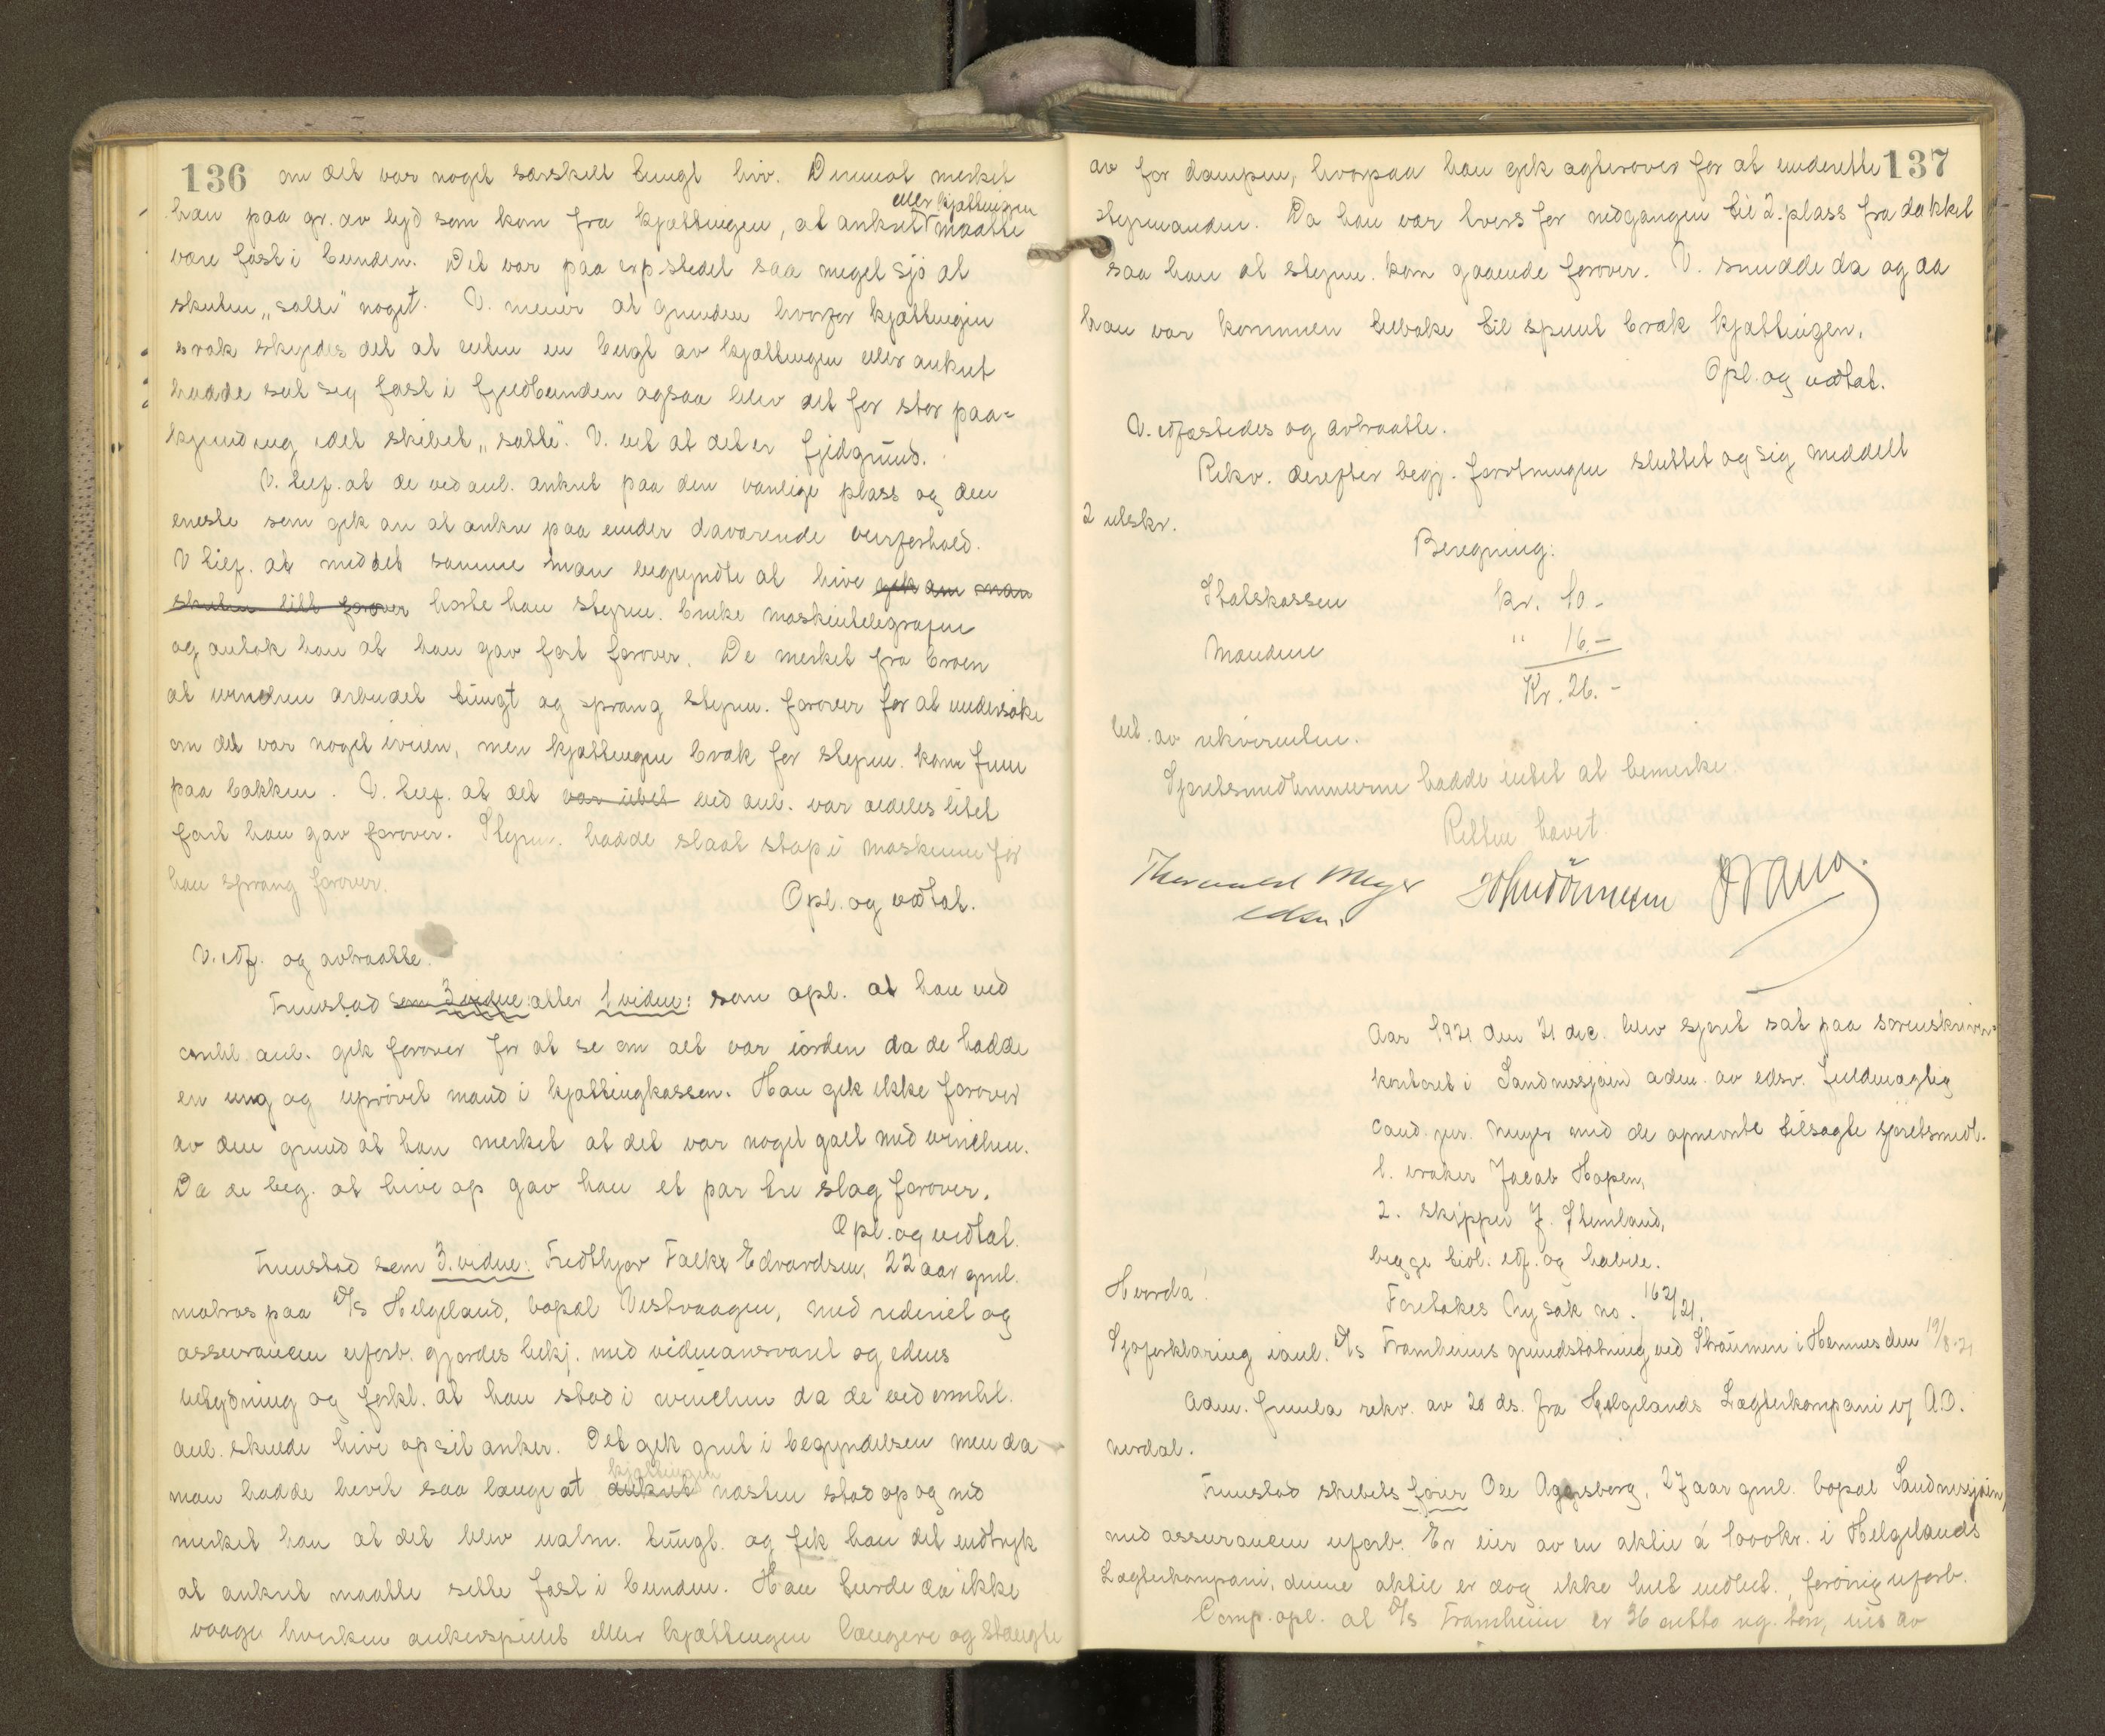 136 om det var noget særskilt tungt hiv. Derimot merket
eller kjættingen
han paa gr. av lyd som kom fra kjættingen, at ankret maatte
være fast i bunden. Det var paa exp. stedet saa meget sjø at
skuten "satte" noget. V. mener at grunden hvorfor kjættingen
brak skyldes det at enten en bugt av kjættingen eller ankret
hadde sat sig fast i fjeldbunden ogsaa blev det for stor paa=
kjending idet skibet "satte". V. vet at det er fjeldgrund.
V. tilf. at de ved anl. ankret paa den vanlige plass og den
eneste som gik an at ankre paa under daværende veirforhold.
V tilf. at med det samme man begyndte at hive gik an man
skulen litt forover hørte han styrm. bruke maskintelegrafen
og antok han at han gav fart forover. De merket fra broen
at winchen arbeidet tungt og sprang styrm. forover for at undersøke
om det var noget iveien, men kjættingen brak før styrm. kom frem
paa bakken. V. tilf. at det var intet ved anl. var aldeles litet
fart han gav forover. Styrm. hadde slaat stop i maskinen før
han sprang forover.
Opl. og vedtat.
V. edf. og avtraatte.
Fremstod som 3 vidne: atter 1 vidne: som opl. at han ved
omhl. anl. gik forover for at se om alt var iorden da de hadde
en ung og uprøvet mand i kjættingkassen. Han gik ikke forover
av den grund at han merket at det var noget galt med winchen.
Da de beg. at hive op gav han et par tre slag forover.
Opl. og vedtat.
Fremstod som 3. vidne: Fredthjov Falks Edvardsen, 22 aar gml.
matros paa D/S Helgeland, bopæl Vestvaagen, med rederiet og
assurancen uforb. gjordes bekj. med vidneansvaret og edens
betydning og forkl. at han stod i winchen da de ved omhl.
anl. skulde hive op sit anker. Det gik greit i begyndelsen men da
kjættingen
man hadde hevet saa længe at ankret næsten stod op og ned
merket han at det blev ualm. tungt. og fik han det indtryk
at ankret maatte sitte fast i bunden. Han turde da ikke
vaage hverken ankerspillet eller kjættingen længere og stængte
137
av for dampen, hvorpaa han gik agterover for at underrette
styrmanden. Da han var tvers for nedgangen til 2. plass fra dækket
saa han at styrm. kom gaaende forover. V. snudde da og da
han var kommen tilbake til spillet brak kjættingen.
Opl. og vedtat.
V. edfæstedes og avtraatte.
Rekv. derefter begj. forretningen sluttet og sig meddelt
2 utskr.
Beregning:
Statskassen kr. 10 -
Mændene " 16.-
Kr. 26.-
bet. av rekvirenten.
Sjøretsmedlemmerne hadde intet at bemerke.
Retten hævet.
Thorvald Meyer
edsv.
Aar 1921 den 21 dec. blev sjøret sat paa sorenskriver=
kontoret i Sandnessjøen adm. av edsv. fuldmægtig
cand. jur. Meyer med de opnevnte tilsagte sjøretsmedl.
1. vraker Jacob Hagen,
2. skipper J. Stemland,
begge tidl. edf. og habile.
Hvorda!
Foretokes Ny sak no. 162/21.
Sjøforklaring ianl. D/S Framheims grundstøtning ved Straumen i Hemnes den 19/8-21
Adm. fremla rekv. av 20 ds. fra Helgelands Lægterkompani v/ A.O.
Nerdal.
Fremstod skibets fører Ole Aggersborg, 27 aar gml. bopæl Sandnessjøen,
med assurancen uforb. Er eier av en aktie á 1000 kr. i Helgelands
Lægterkompani, denne aktie er dog ikke helt indbet., forøvrig uforb.
Comp. opl. at D/S Framheim er 36 netto reg. ton, eies av